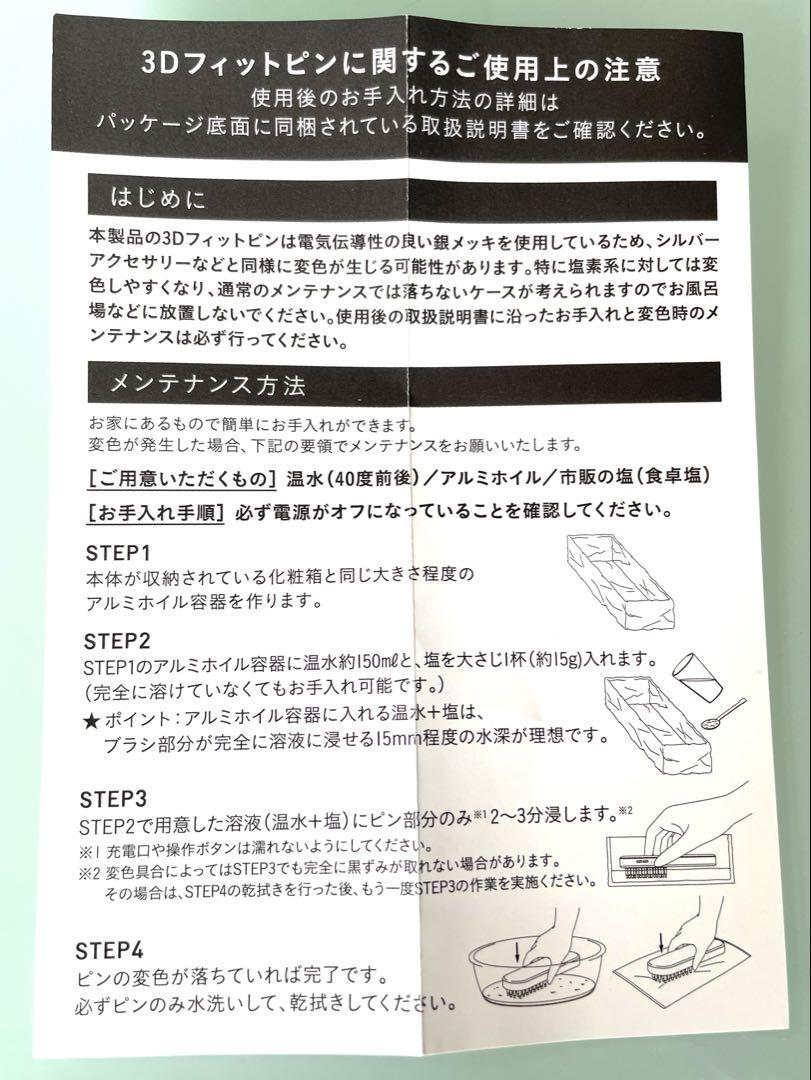 3Dフィットピンに関するご使用上の注意
使用後のお手入れ方法の詳細は
パッケージ底面に同梱されている取扱説明書をご確認ください。
はじめに
本製品の3Dフィットピンは電気伝導性の良い銀メッキを使用しているため、シルバー
アクセサリーなどと同様に変色が生じる可能性があります。特に塩素系に対しては変
色しやすくなり、通常のメンテナンスでは落ちないケースが考えられますのでお風呂
場などに放置しないでください。使用後の取扱説明書に沿ったお手入れと変色時のメ
ンテナンスは必ず行ってください。
メンテナンス方法
お家にあるもので簡単にお手入れができます。
変色が発生した場合、下記の要領でメンテナンスをお願いいたします。
[ご用意いただくもの] 温水(40度前後)/アルミホイル/市販の塩(食卓塩)
[お手入れ手順] 必ず電源がオフになっていることを確認してください。
STEP1
本体が収納されている化粧箱と同じ大きさ程度の
アルミホイル容器を作ります。
STEP2
STEP1のアルミホイル容器に温水約150mℓと、塩を大さじ1杯(約15g)入れます。
(完全に溶けていなくてもお手入れ可能です。)
★ポイント:アルミホイル容器に入れる温水+塩は、
ブラシ部分が完全に溶液に浸せる15mm程度の水深が理想です。
STEP3
STEP2で用意した溶液(温水+塩)にピン部分のみ※1 2〜3分浸します。※2
※1 充電口や操作ボタンは濡れないようにしてください。
※2 変色具合によってはSTEP3でも完全に黒ずみが取れない場合があります。
その場合は、STEP4の乾拭きを行った後、もう一度STEP3の作業を実施ください。
STEP4
ピンの変色が落ちていれば完了です。
必ずピンのみ水洗いして、乾拭きしてください。